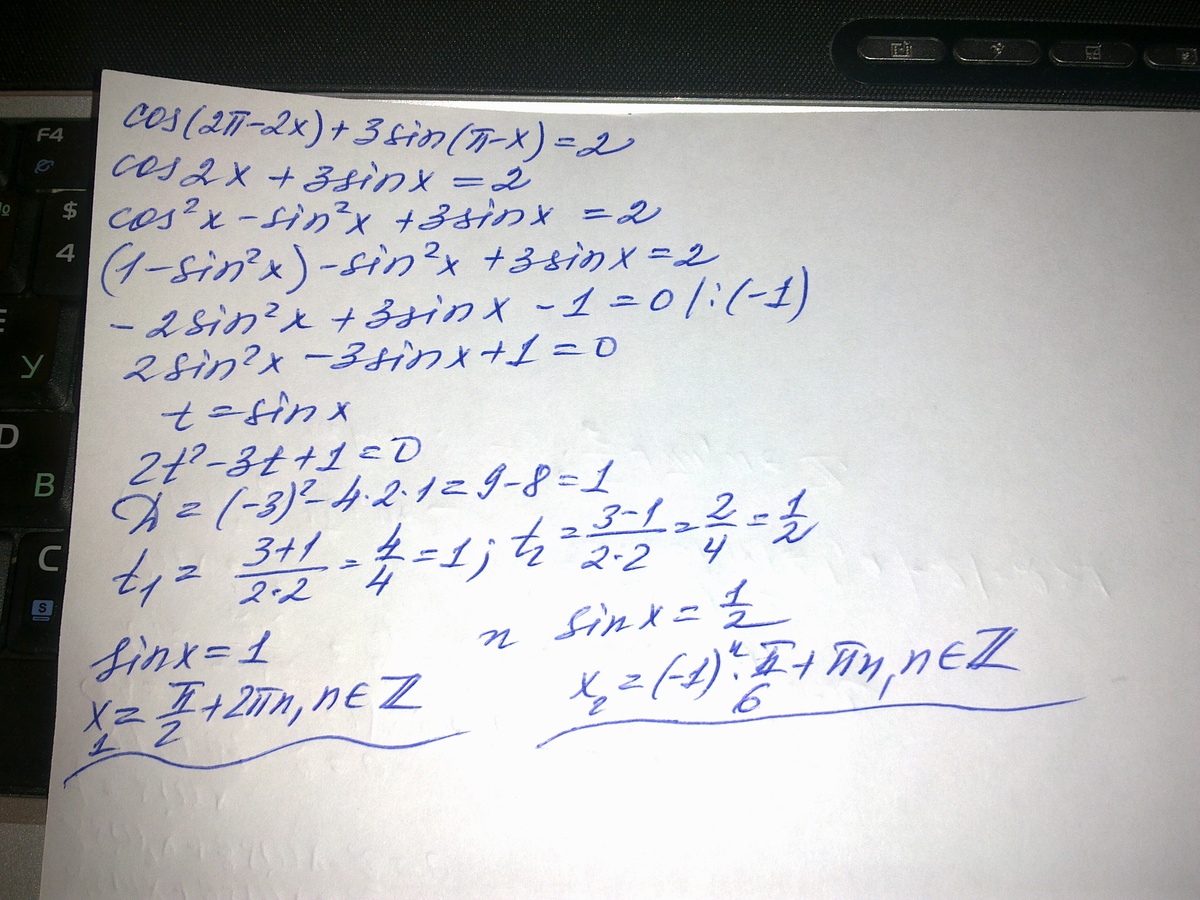 F4
$
4
У
D
B
C
S
cos(2π-2x)+3sin(π-x)=2
cos2x+3sinx=2
cos²x-sin²x+3sinx=2
(1-sin²x)-sin²x+3sinx=2
-2sin²x+3sinx-1=0 |:(-1)
2sin²x-3sinx+1=0
t=sinx
2t²-3t+1=0
D=(-3)²-4·2·1=9-8=1
t₁=(3+1)/(2·2)=4/4=1; t₂=(3-1)/(2·2)=2/4=1/2
sinx=1 и sinx=1/2
x₁=π/2+2πn, n∈ℤ x₂=(-1)ⁿ·π/6+πn, n∈ℤ